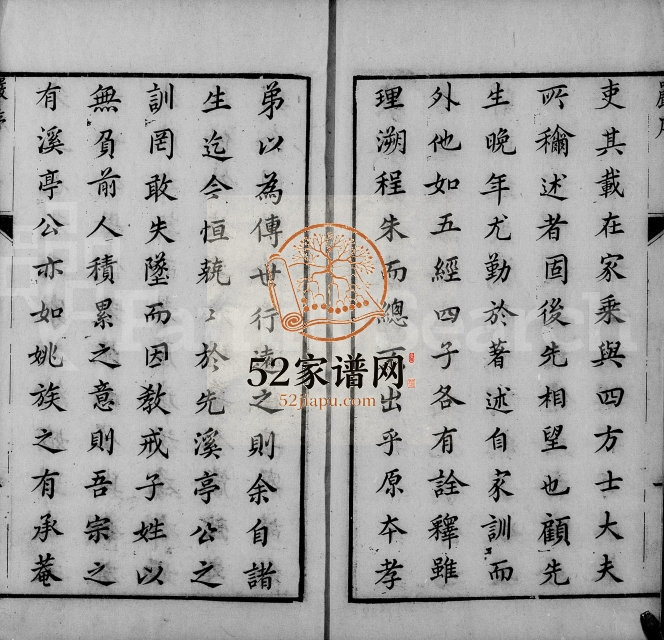 吏其載在家乘與四方士大夫
所稱述者固後先相望也顧先
生晚年尤勤於著述自家訓而
外他如五經四子各有詮釋雖
理溯程朱而總 出乎原本孝
弟以為傳世行遠之則余自諸
生迄今恒兢〻於先溪亭公之
訓罔敢失墜而因教戒子姓以
無負前人積累之意則吾宗之
有溪亭公亦如姚族之有承菴
嚴序
FamilySearch
52家谱网
52jiapu.com